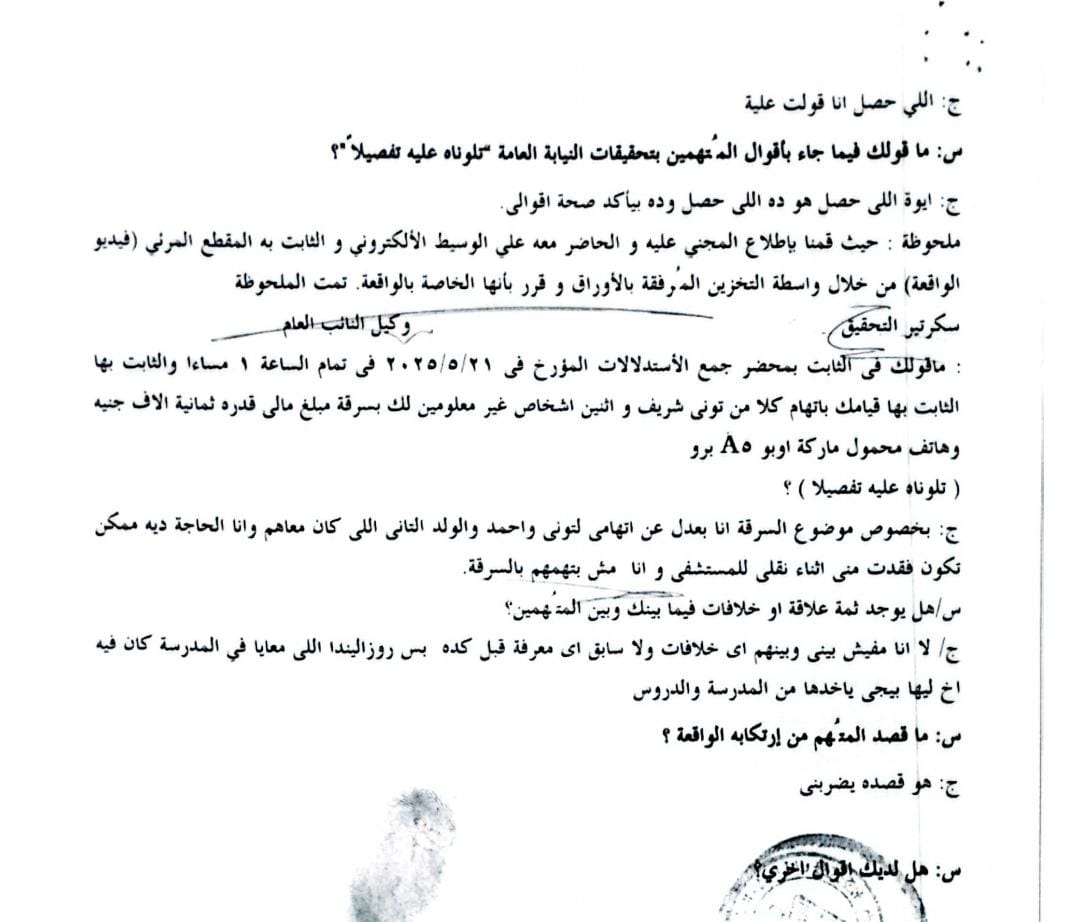 ج: اللي حصل انا قولت علية
س: ما قولك فيما جاء بأقوال المُتهمين بتحقيقات النيابة العامة "تلوناه عليه تفصيلاً"؟
ج: ايوة اللى حصل هو ده اللى حصل وده بيأكد صحة اقوالى.
ملحوظة : حيث قمنا بإطلاع المجني عليه و الحاضر معه علي الوسيط الألكتروني و الثابت به المقطع المرئي (فيديو
الواقعة) من خلال واسطة التخزين المُرفقة بالأوراق و قرر بأنها الخاصة بالواقعة. تمت الملحوظة
سكرتير التحقيق وكيل النائب العام
: ماقولك فى الثابت بمحضر جمع الأستدلالات المؤرخ فى ٢٠٢٥/٥/٢١ فى تمام الساعة ١ مساءا والثابت بها
الثابت بها قيامك باتهام كلا من تونى شريف و اثنين اشخاص غير معلومين لك بسرقة مبلغ مالى قدره ثمانية الاف جنيه
وهاتف محمول ماركة اوبو A٥ برو
( تلوناه عليه تفصيلا ) ؟
ج: بخصوص موضوع السرقة انا بعدل عن اتهامى لتونى واحمد والولد التانى اللى كان معاهم وانا الحاجة ديه ممكن
تكون فقدت منى اثناء نقلى للمستشفى و انا مش بتهمهم بالسرقة.
س/هل يوجد ثمة علاقة او خلافات فيما بينك وبين المتُهمين؟
ج/ لا انا مفيش بينى وبينهم اى خلافات ولا سابق اى معرفة قبل كده بس روزاليندا اللى معايا في المدرسة كان فيه
اخ ليها بيجى ياخدها من المدرسة والدروس
س: ما قصد المتُهم من إرتكابه الواقعة ؟
ج: هو قصده يضربنى
س: هل لديك اقوال اخري؟